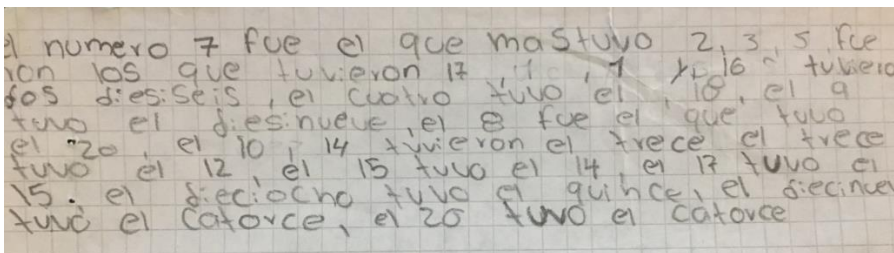 el numero 7 fue el que mas tuvo 2, 3, 5, fue
ron los que tuvieron 17, 1, y 16 tuviero
dos diesiseis, el cuatro tuvo el 18, el 9
tuvo el diesinueve, el 8 fue el que tuvo
el 20, el 10, 14 tuvieron el trece el trece
tuvo el 12, el 15 tuvo el 14, el 17 tuvo el
15. el dieciocho tuvo el quince, el diecince
tuvo el catorce, el 20 tuvo el catorce